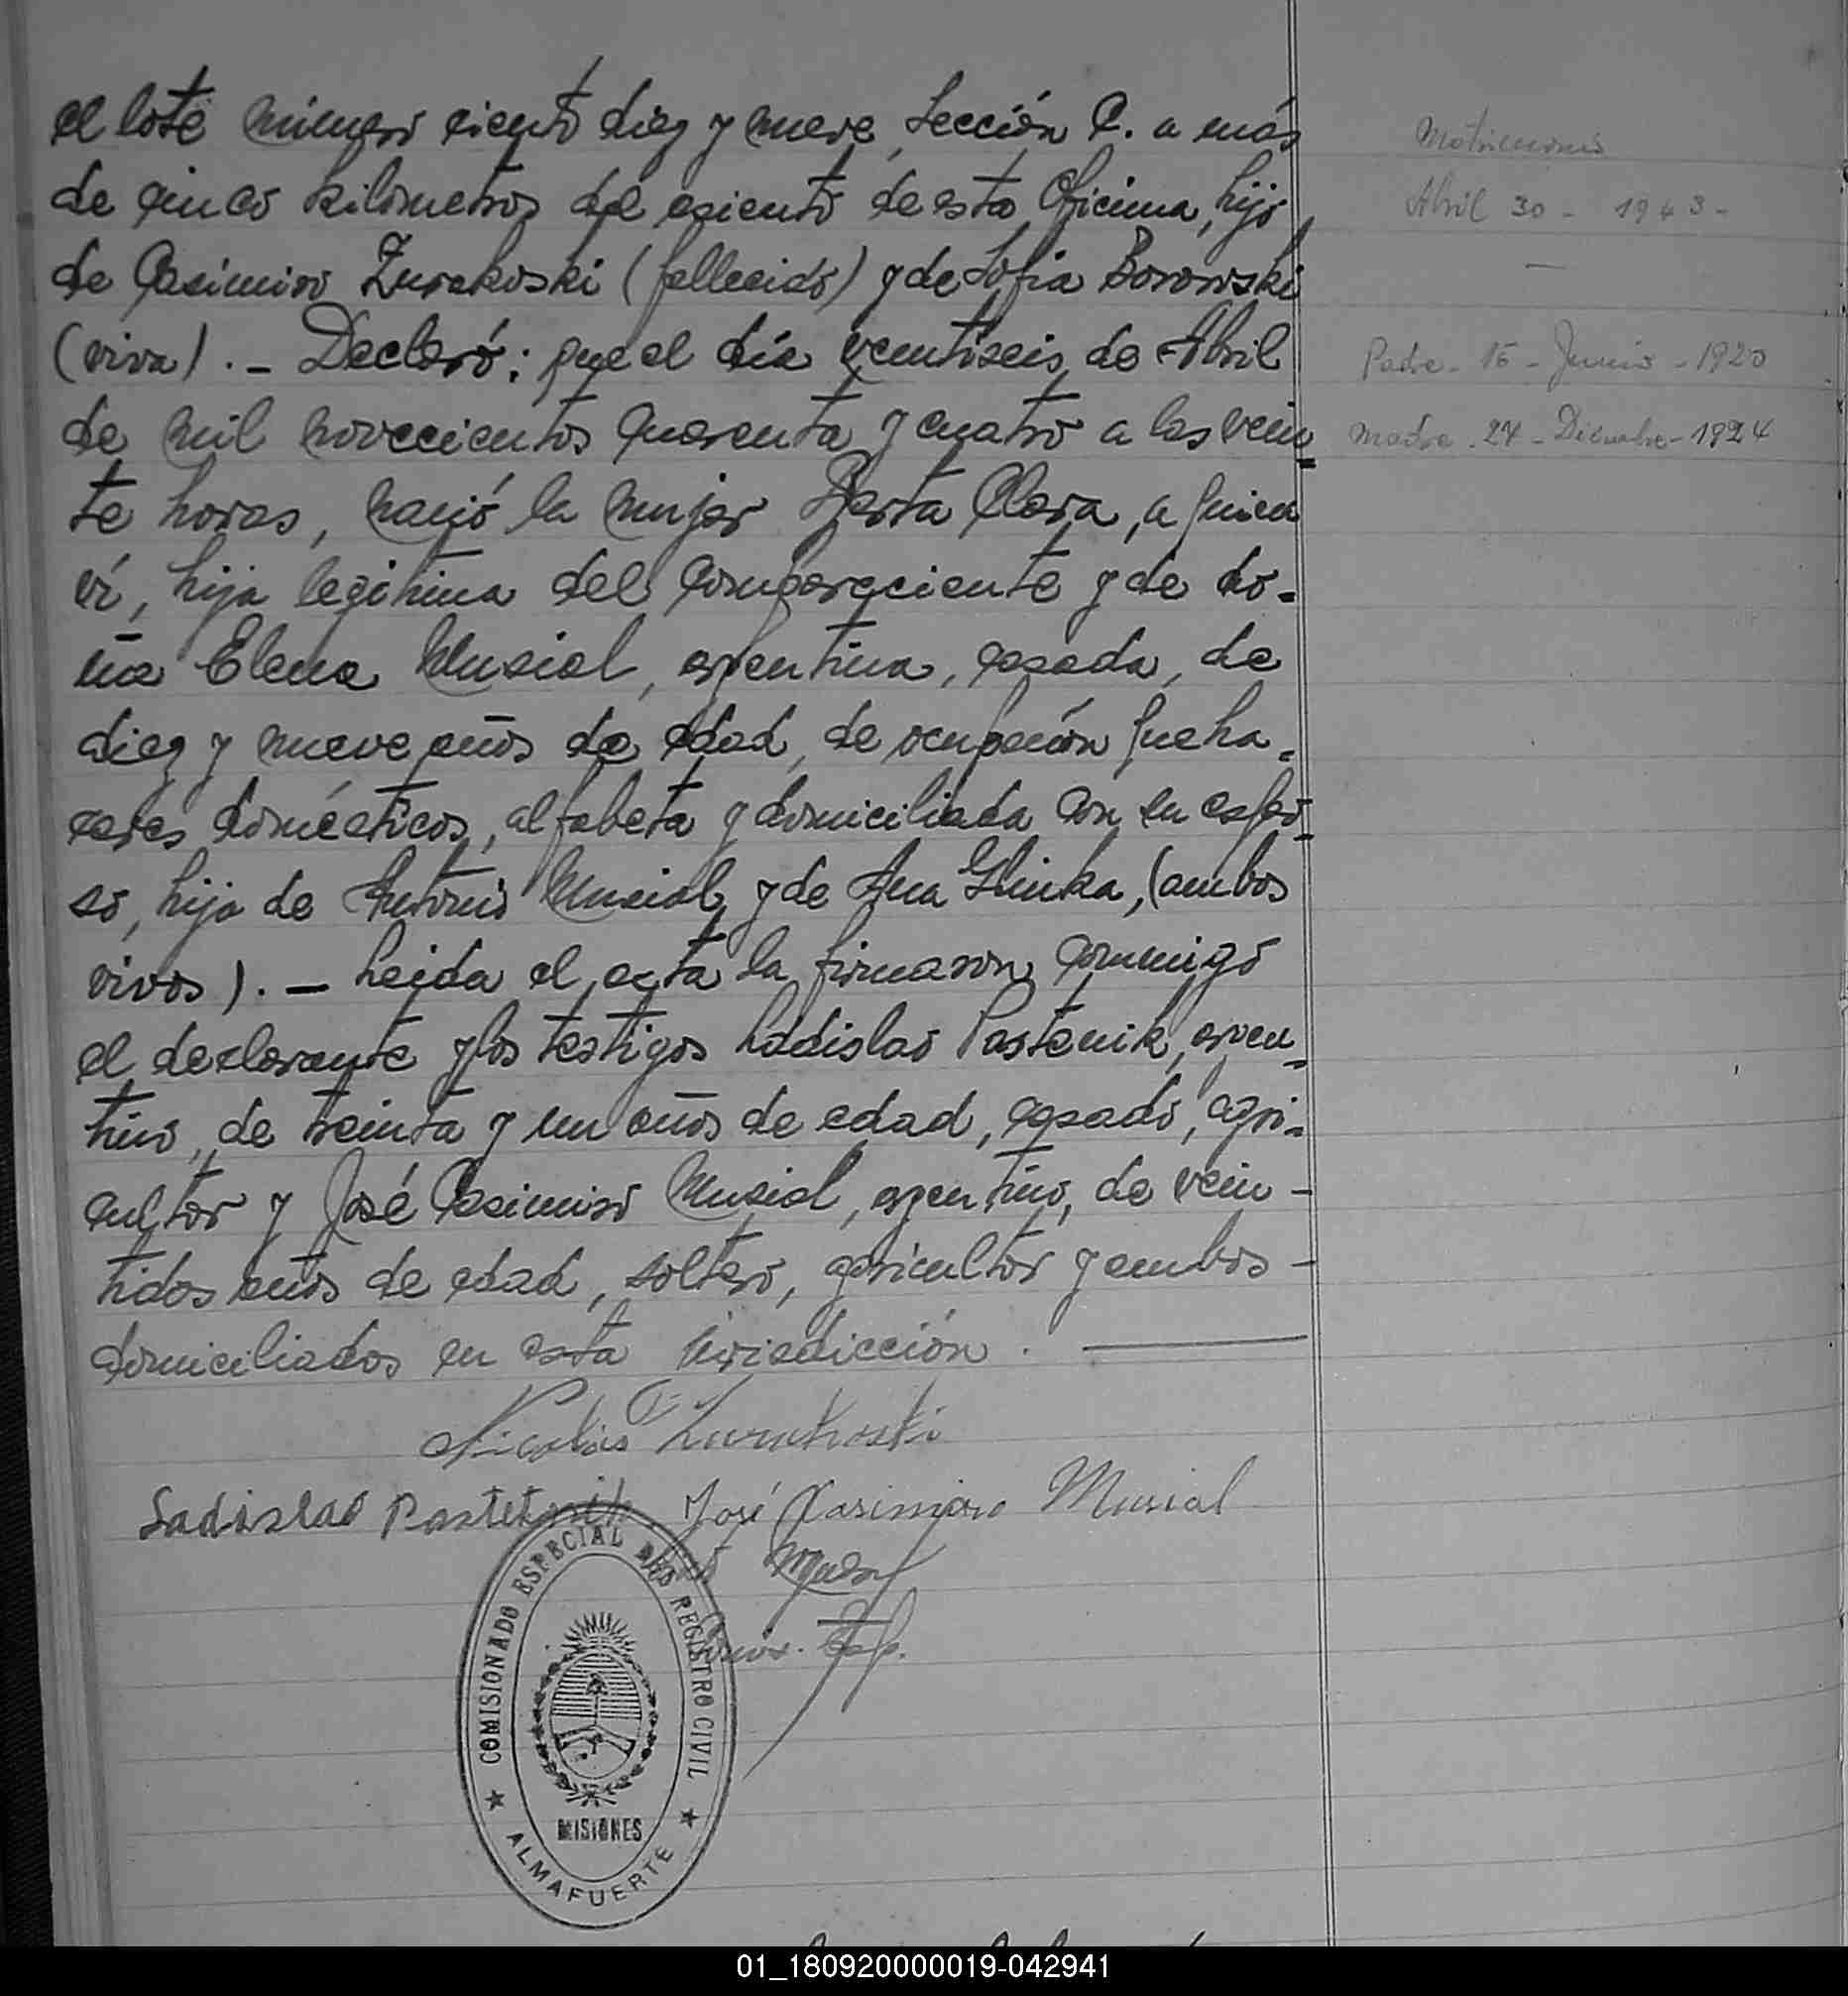 el lote número ciento diez y nueve, Sección C. a más
de cinco kilómetros del asiento de esta Oficina, hijo
de Casimiro Zurakoski (fallecido) y de Sofia Borowski
(viva). — Declaró: que el día veintiseis de Abril
de mil novecientos cuarenta y cuatro a las vein-
te horas, nació la mujer Berta Clara, a quien
ví, hija legitima del compareciente y de do-
ña Elena Musial, argentina, casada, de
diez y nueve años de edad, de ocupación queha-
ceres domésticos, alfabeta y domiciliada con su espo-
so, hija de Antonio Musial y de Ana Glinka, (ambos
vivos). — Leida el acta la firmaron conmigo
el declarante y los testigos Ladislao Pastenik, argen-
tino, de treinta y un años de edad, casado, agri-
cultor y José Casimiro Musial, argentino, de vein-
tidos años de edad, soltero, agricultor y ambos -
domiciliados en esta jurisdicción. ———
Nicolás Zurakoski
Ladislao José Casimiro Musial
COMISIONADO ESPECIAL DEL REGISTRO CIVIL
MISIONES
ALMAFUERTE
Matrimonio
Abril 30 - 1943 -
—
Padre - 15 - Junio - 1920
Madre - 24 - Diciembre - 1924
01_180920000019-042941